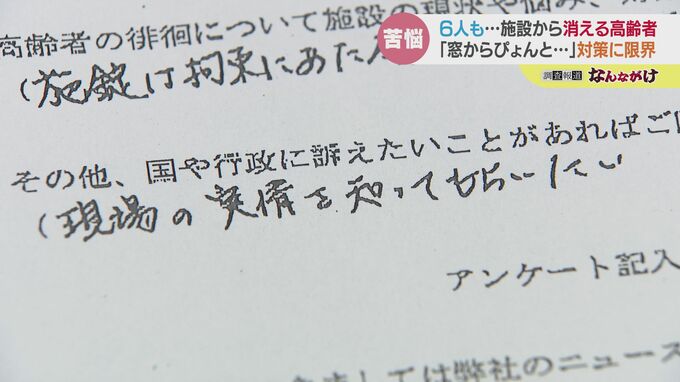 苦悩
6人も…施設から消える高齢者
「窓からぴょんと…」対策に限界
調査報道 なんながけ
高齢者の徘徊について施設の現状や悩み、
(施錠は拘束にあた
その他、国や行政に訴えたいことがあればご
(現場の実情を知ってもらいたい
アンケート記入
しては弊社のニュース